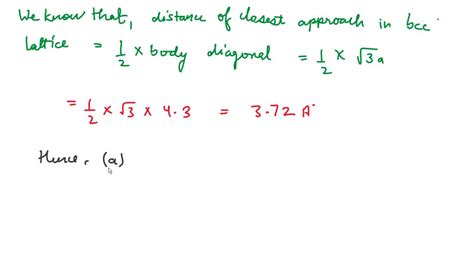 We know that, distance of closest approach in bcc
lattice = 1/2 × body diagonal = 1/2 × √3 a
= 1/2 × √3 × 4.3 = 3.72 A°
Hence, (a)